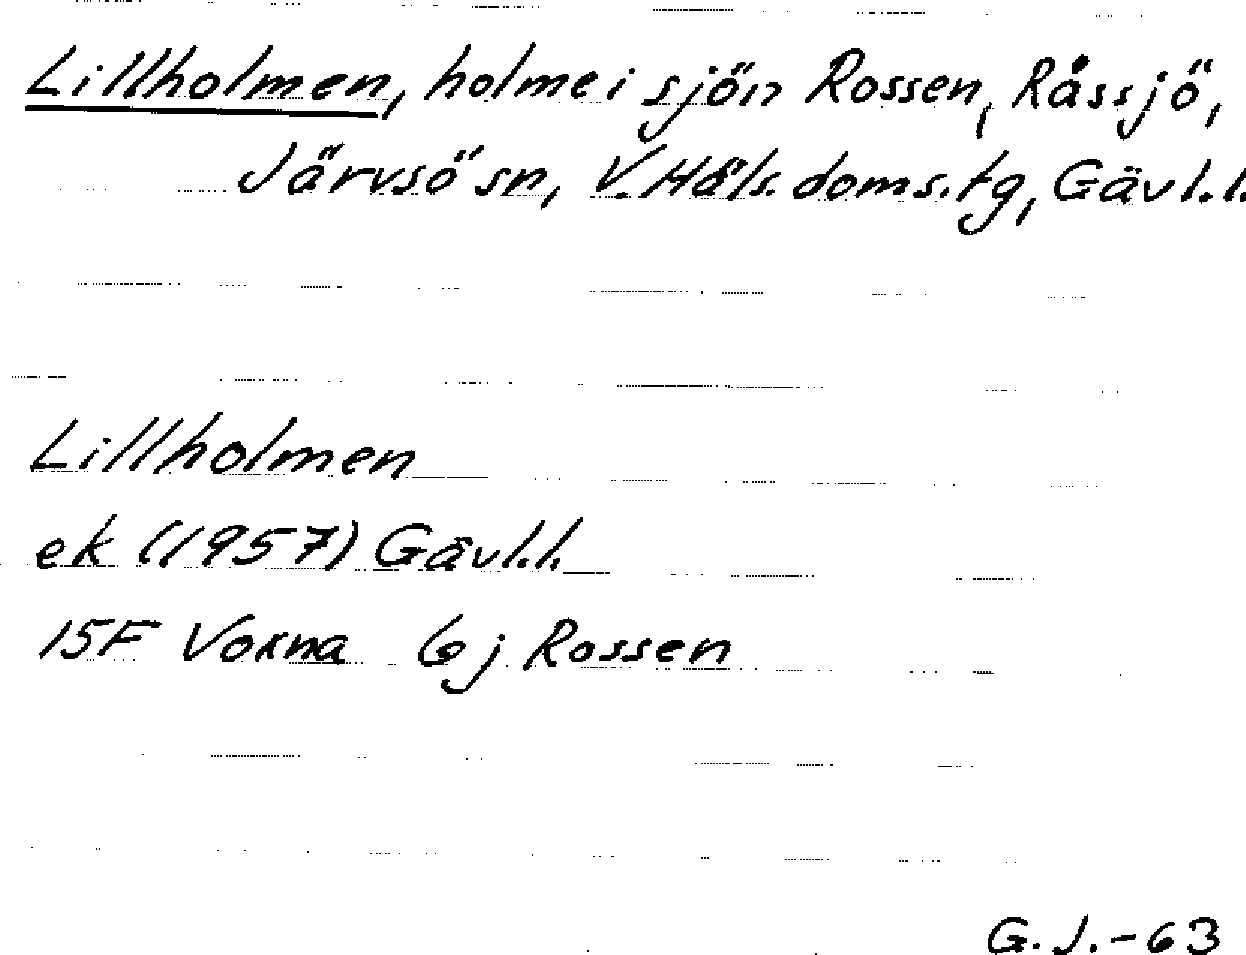 Lillholmen, holme i sjön Rossen, Råssjö,
Järvsö sn, V. Häls. doms. tg, Gävl. l.
Lillholmen
ek (1957) Gävl. l.
15F Voxna 6j Rossen
G. J. - 63